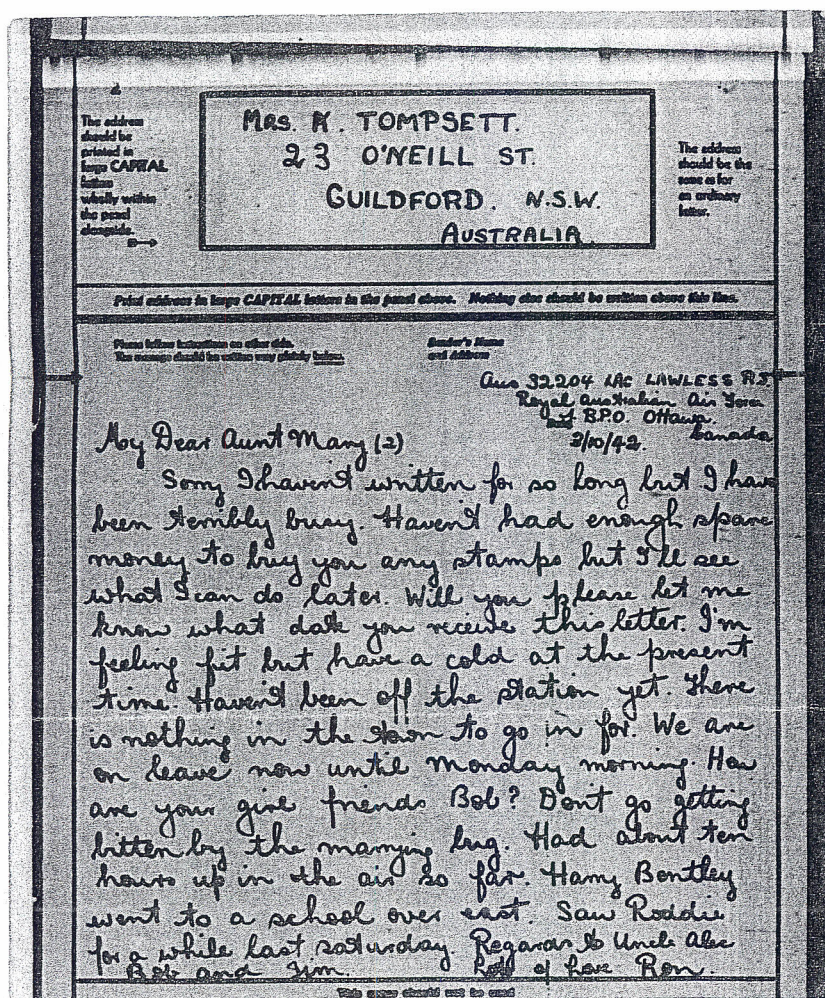 The address
should be
printed in
large CAPITAL
letters
wholly within
the panel
alongside.
MRS. K. TOMPSETT.
23 O'NEILL ST.
GUILDFORD. N.S.W.
AUSTRALIA.
The address
should be the
same as for
an ordinary
letter.
Print address in large CAPITAL letters in the panel above. Nothing else should be written above this line.
Please follow instructions on other side.
The message should be written very plainly below.
Sender's Name
and Address
Aus 32204 LAC LAWLESS R J
Royal Australian Air Force
B.P.O. Ottawa.
Canada
2/10/42.
My Dear Aunt Mary (2)
Sorry I haven't written for so long but I have
been terribly busy. Haven't had enough spare
money to buy you any stamps but I'll see
what I can do later. Will you please let me
know what date you receive this letter. I'm
feeling fit but have a cold at the present
time. Haven't been off the station yet. There
is nothing in the town to go in for. We are
on leave now until Monday morning. How
are your girl friends Bob? Don't go getting
bitten by the marrying bug. Had about ten
hours up in the air so far. Harry Bentley
went to a school over east. Saw Roddie
for a while last saturday. Regards to Uncle Alec
Bob and Jim. Lots of love Ron.